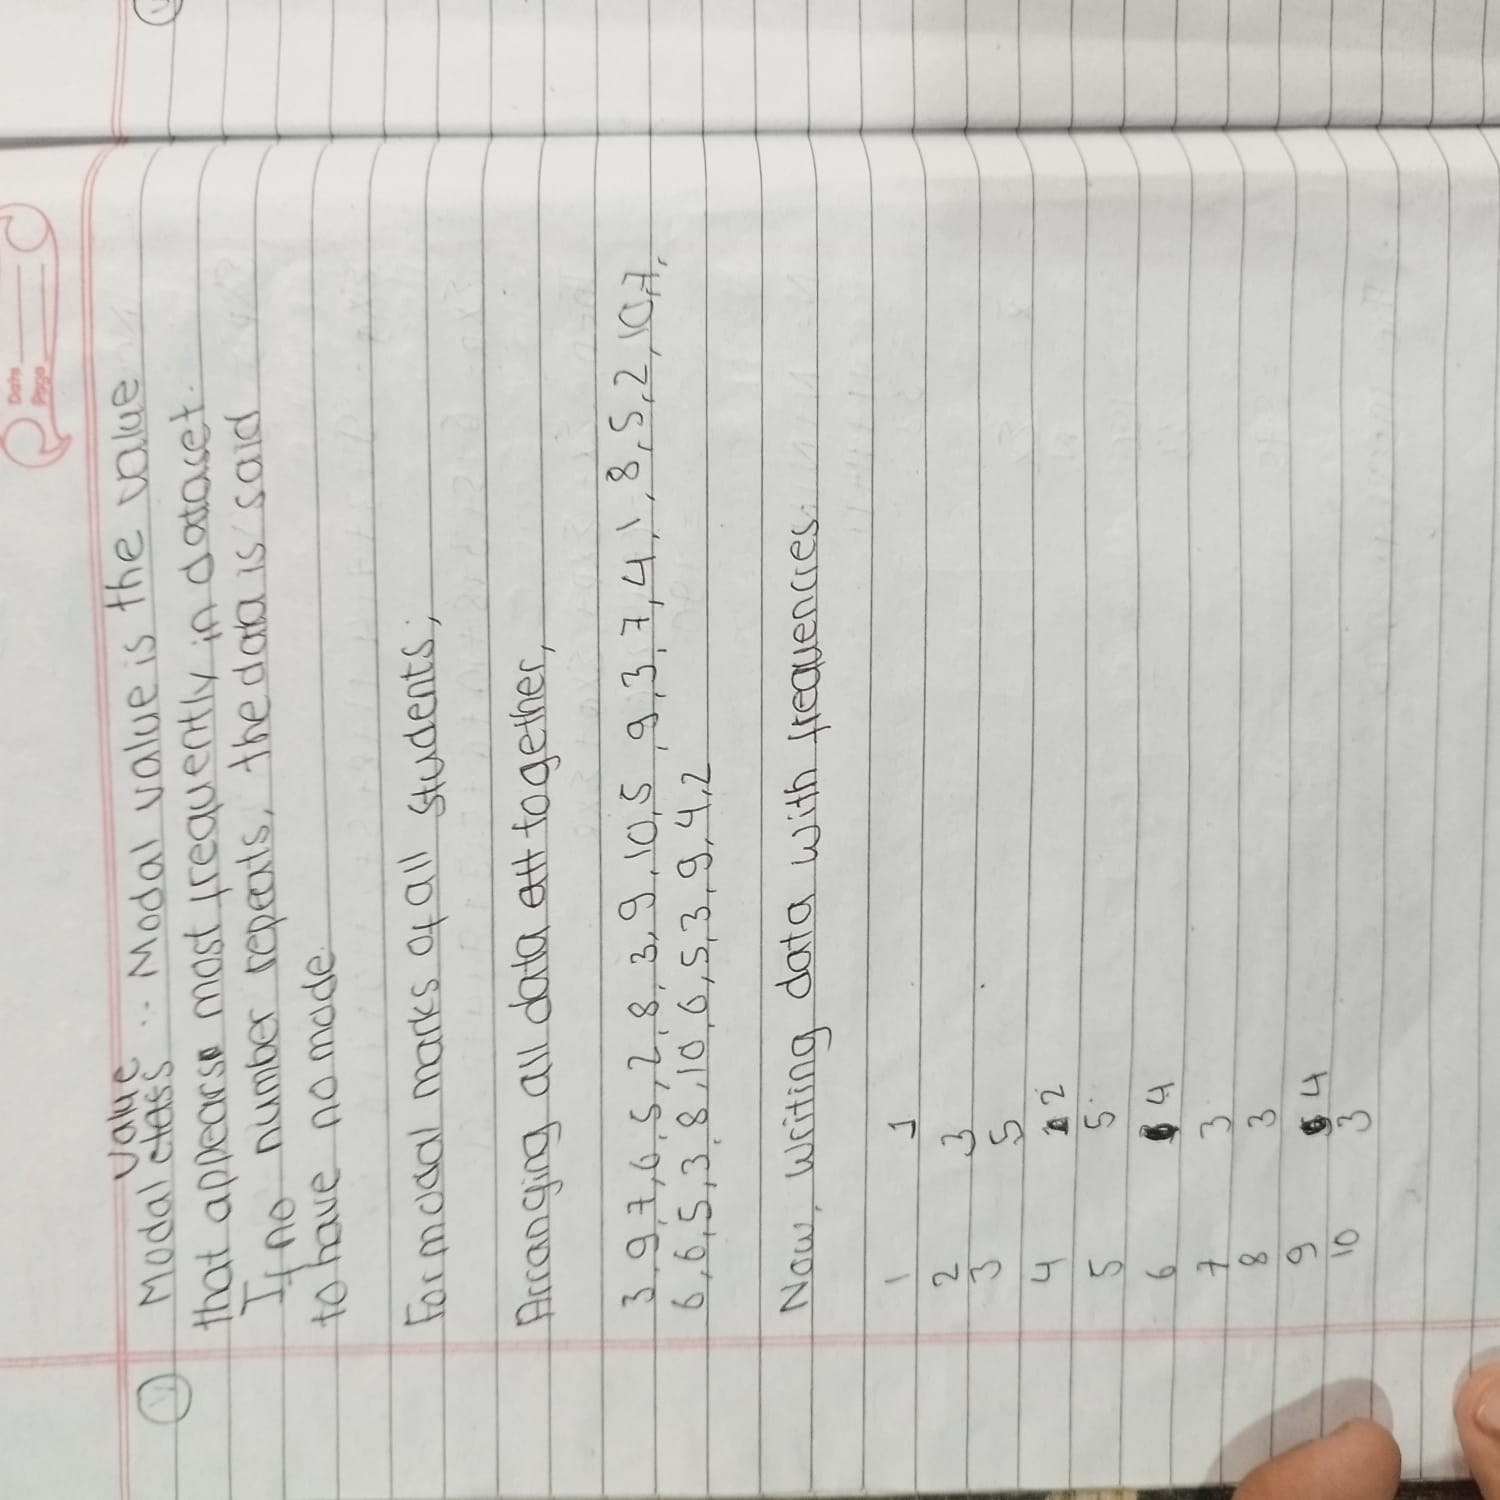 Date
Page
value
Modal class :- Modal value is the value
that appears most frequently in dataset.
If no number repeats, the data is said
to have no mode.
For modal marks of all students;
Arranging all data all together,
3,9,7,6,5,2,8,3,9,10,5,9,3,7,4,1,8,5,2,10,7,
6,6,5,3,8,10,6,5,3,9,4,2
Now, Writing data with frequencies.
1 1
2 3
3 5
4 2
5 5
6 4
7 3
8 3
9 4
10 3